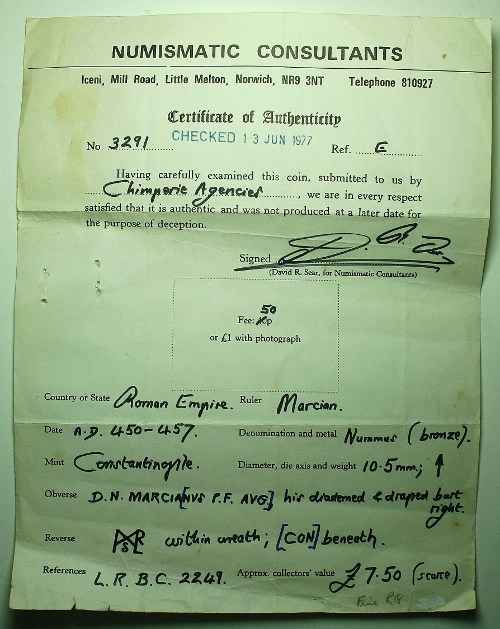 NUMISMATIC CONSULTANTS
Iceni, Mill Road, Little Melton, Norwich, NR9 3NT Telephone 810927
Certificate of Authenticity
No 3291 CHECKED 13 JUN 1977 Ref. E
Having carefully examined this coin, submitted to us by
Chimperie Agencies, we are in every respect
satisfied that it is authentic and was not produced at a later date for
the purpose of deception.
Signed
(David R. Sear, for Numismatic Consultants)
50
Fee: p
or £1 with photograph
Country or State Roman Empire. Ruler Marcian.
Date A.D. 450-457. Denomination and metal Nummus (bronze).
Mint Constantinople. Diameter, die axis and weight 10.5mm; ↑
Obverse D.N. MARCIA[NVS P.F. AVG] his diademed & draped bust
right.
Reverse within wreath; [CON] beneath.
References L.R.B.C. 2249. Approx. collectors' value £7.50 (scarce).